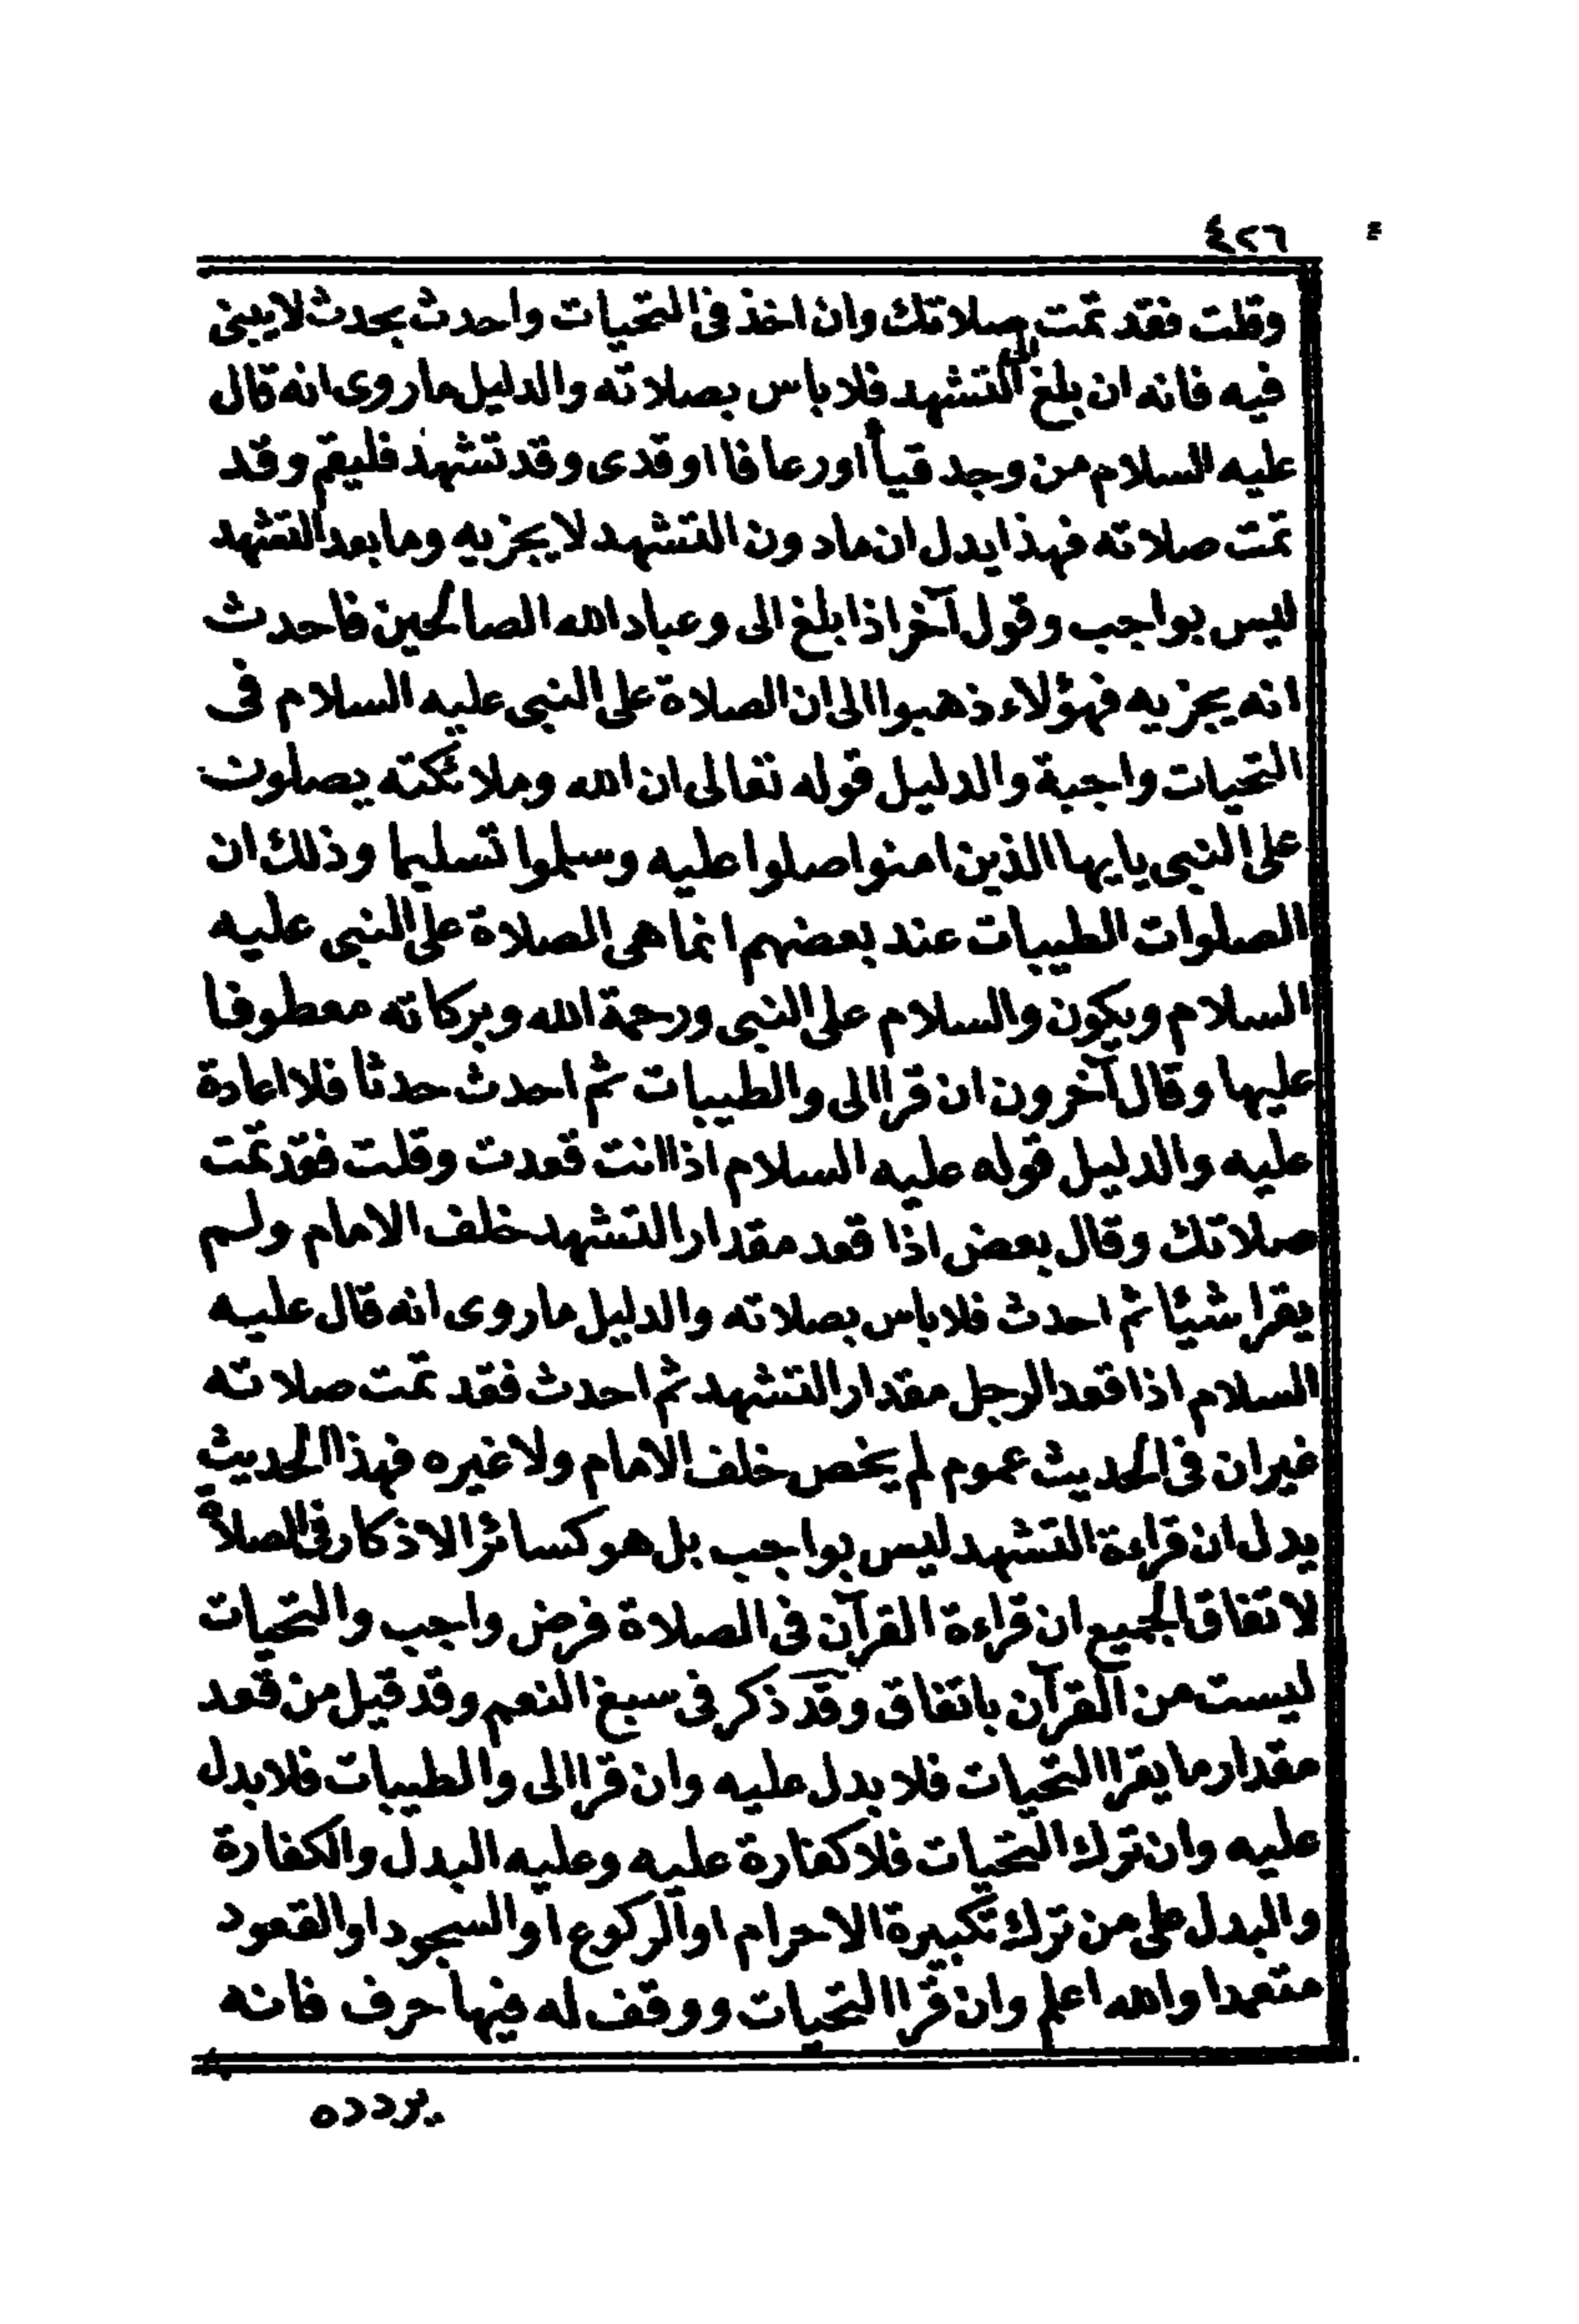 ٤٢٦
وقلت فقد تمت صلاتك وان اخذ فى التحيات واحدث بحدث لا يبنى
فيه فانه ان بلغ الى التشهد فلا باس بصلاته والدليل ماروى انه قال
عليه السلام من وجد قيأ اورعافا اوقدى وقد تشهد فليقم وقد
تمت صلاته فهذا يدل ان مادون التشهد لا يجزيه وما بعد التشهد
ليس بواجب وقول آخر اذا بلغ الى وعباد الله الصالحين فاحدث
انه يجزيه فهؤلاء ذهبوا الى ان الصلاة على النبى عليه السلام فى
التحيات واجبة والدليل قوله تعالى ان الله وملائكته يصلون
على النبى يايها الذين امنوا صلوا عليه وسلموا تسليما وذلك ان
الصلوات الطيبات عند بعضهم انما هى الصلاة على النبى عليه
السلام ويكون والسلام على النبى ورحمة الله وبركاته معطوفا
عليها وقال آخرون ان قرا الى والطيبات ثم احدث حدثا فلا اعادة
عليه والدليل قوله عليه السلام اذا انت قعدت وقلت فقد تمت
صلاتك وقال بعض اذا قعد مقدار التشهد خلف الامام ولم
يقرا شيئا ثم احدث فلا باس بصلاته والدليل ماروى انه قال عليه
السلام اذا قعد الرجل مقدار التشهد ثم احدث فقد تمت صلاته
غير ان فى الحديث عموم لم يخص خلف الامام ولا غيره فهذا الحديث
يدل ان قراءة التشهد ليس بواجب بل هو كسائر الاذكار فى الصلاة
لاتفاق الجميع ان قراءة القرآن فى الصلاة فرض واجب والتحيات
ليست من القرآن باتفاق وقد ذكر فى سبغ النعم وقد قيل من قعد
مقدار ما يقرا التحيات فلا بدل عليه وان قرا الى والطيبات فلا بدل
عليه وان ترك التحيات فلا كفارة عليه وعليه البدل والكفارة
والبدل على من ترك تكبيرة الاحرام او الركوع او السجود او القعود
متعمدا والله اعلم وان قرا التحيات ووقف له فيها حرف فانه
يردده